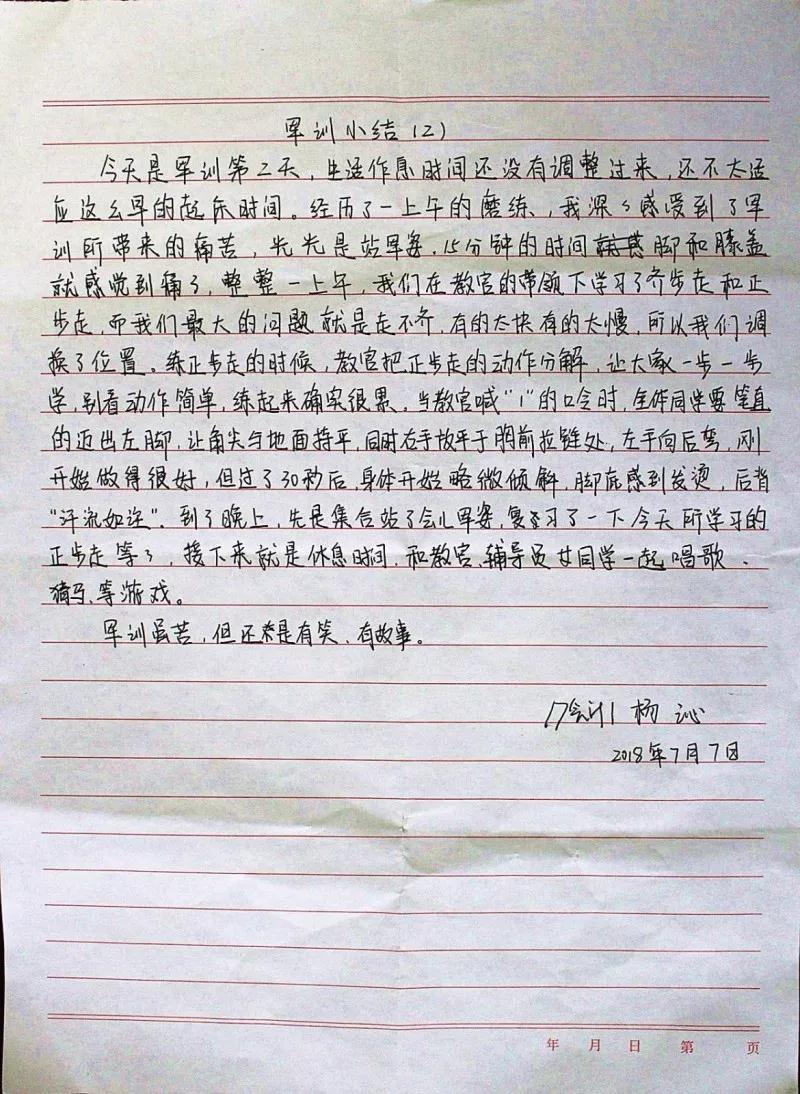 军训小结(2)
今天是军训第二天，生活作息时间还没有调整过来，还不太适
应这么早的起床时间。经历了一上午的磨练，我深深感受到了军
训所带来的痛苦，光光是站军姿，15分钟的时间脚和膝盖
就感觉到痛了，整整一上午，我们在教官的带领下学习了齐步走和正
步走，而我们最大的问题就是走不齐，有的太快有的太慢，所以我们调
换了位置。练正步走的时候，教官把正步走的动作分解，让大家一步一步
学，别看动作简单，练起来确实很累。当教官喊“1”的口令时，全体同学要笔直
的迈出左脚，让角尖与地面持平，同时右手放平于胸前拉链处，左手向后弯，刚
开始做得很好，但过了30秒后，身体开始略微倾斜，脚底感到发烫，后背
“汗流如注”。到了晚上，先是集合站了会儿军姿，复习了一下今天所学习的
正步走等等，接下来就是休息时间，和教官、辅导员女同学一起唱歌、
等游戏。
军训虽苦，但还是有笑、有故事。
17会计1 杨沁
2018年7月7日
年 月 日 第 页